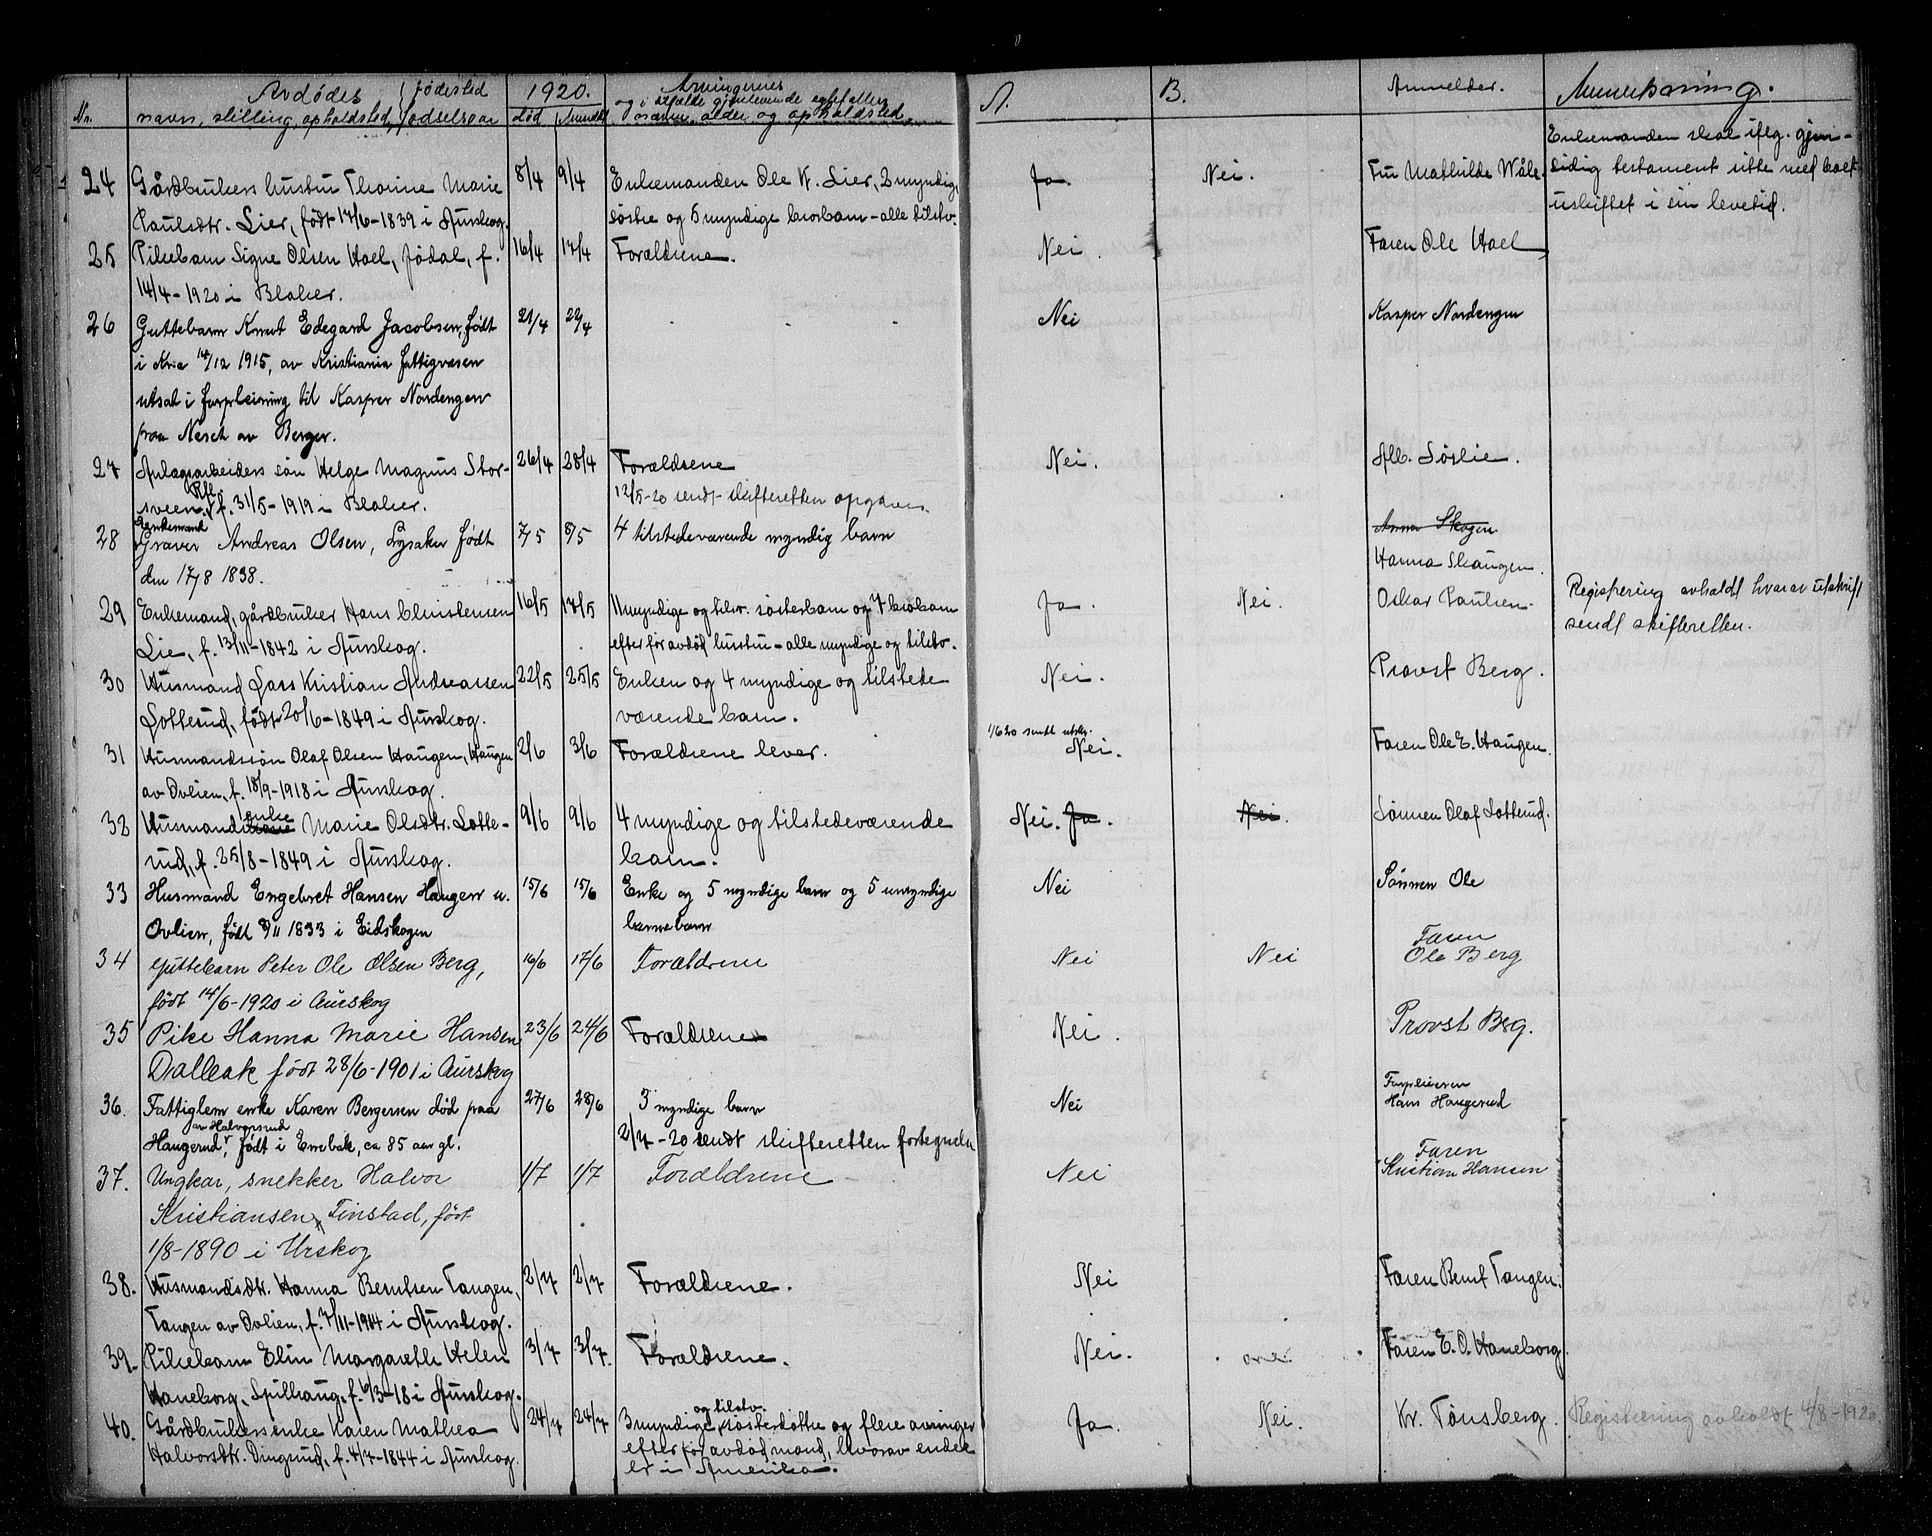 Nr. Avdödes navn, stilling, opholdsted, födested födselsaar 1920. död Anmeldt Arvingernes og i tilfælde gjenlevende egtefælles navn, alder og opholdsted. A. B. Anmelder. Anmerkning.
24 Gårdbrukers hustru Thorine Marie 8/4 9/4 Enkemanden Ole K. Lier, 2 myndige Ja. Nei. Fru Mathilde Wåle Enkemanden skal iflg. gjen-
Paulsdtr. Lier, födt 17/6-1839 i Aurskog. söstre og 5 myndige brorbarn - alle tilstv. sidig testament sitte med boet
uskiftet i sin levetid.
25 Pikebarn Signe Olsen Hoel, Jödal, f. 16/4 17/4 Forældrene. Nei. Faren Ole Hoel
14/4-1920 i Blaker.
26 Guttebarn Knut Edegard Jacobsen, födt 21/4 22/4 Nei Kasper Nordengen
i Kria 14/12 1915, av Kristiania fattigvæsen
utsat i forpleining til Kasper Nordengen
paa Neset av Berger.
27 Anlægsarbeiders sön Helge Magnus Stor- 26/4 28/4 Forældrene Nei. Alb. Sörlie.
sveen, f. 31/5-1919 i Blaker. 12/5-20 sendt skifteretten opgaven
28 Enkemand Graver Andreas Olsen, Lysaker födt 7/5 8/5 4 tilstedeværende myndig barn Anna Skogen
den 17/8 1838. Hanna Skaugen.
29 Enkemand, gårdbruker Hans Christensen 16/5 17/5 11 myndige og tilstv. sösterbarn og 7 brorbarn Ja. Nei. Oskar Paulsen. Registrering avholdt hvorav utskrift
Lie, f. 13/11-1842 i Aurskog. efter för avdöd hustru - alle myndige og tilstv. sendt skifteretten.
30 Husmand Lars Kristian Andreassen 22/5 25/5 Enken og 4 myndige og tilstede Nei. Provst Berg.
Lotterud, födt 20/6-1849 i Aurskog. værende barn.
1/6 20 sendt utskr.
31 Husmandssön Olaf Olsen Haugen, Haugen 2/6 3/6 Forældrene lever. Nei. Faren Ole E. Haugen.
av Ovlien, f. 18/9-1918 i Aurskog.
32 Husmandsenke Marie Olsdtr. Lotte- 9/6 9/6 4 myndige og tilstedeværende Nei. Ja. Nei. Sönnen Olaf Lotterud.
rud, f. 25/8-1849 i Aurskog. barn.
33 Husmand Engebret Hansen Haugen u. 15/6 15/6 Enke og 5 myndige barn og 5 umyndige Nei Sönnen Ole
Ovlien, födt 8/11 1833 i Eidskogen barnebarn
34 Guttebarn Peter Ole Olsen Berg, 16/6 17/6 Forældrene Nei Nei Faren Ole Berg
födt 14/6-1920 i Aurskog
35 Pike Hanna Marie Hansen 23/6 24/6 Forældrene Nei. Provst Berg.
Dalbak födt 28/6-1901 i Aurskog
36. Fattiglem enke Karen Bergersen död paa 27/6 28/6 3 myndige barn Nei Forpleieren Hans Haugerud
Haugerud av Halvorsrud, födt i Enebak, ca 85 aar gl. 2/7-20 sendt skifteretten fortegnelse
37. Ungkar, snekker Halvor 1/7 1/7 Forældrene Nei Faren Kristian Hansen
Kristiansen, Finstad, födt
1/8-1890 i Urskog
38. Husmandsdtr. Hanna Berntsen Tangen, 2/7 2/7 Forældrene. Nei Faren Bernt Tangen.
Tangen av Ovlien, f. 7/11-1904 i Aurskog.
39. Pikebarn Elin Margarethe Helen 3/7 3/7. Forældrene. Nei. Faren E. O. Haneborg.
Haneborg, Spilhaug, f. 6/3-18 i Aurskog.
40. Gårdbrukersenke Karen Mathea 24/7 24/7 3 myndige og tilstv. sösterdöttre og flere arvinger Ja. Nei. Kr. Tönsberg. Registrering avholdt 4/8-1920
Halvorsdtr. Dingsrud, f. 4/7-1844 i Aurskog. efter för avdöd mand, hvorav endel
er i Amerika.